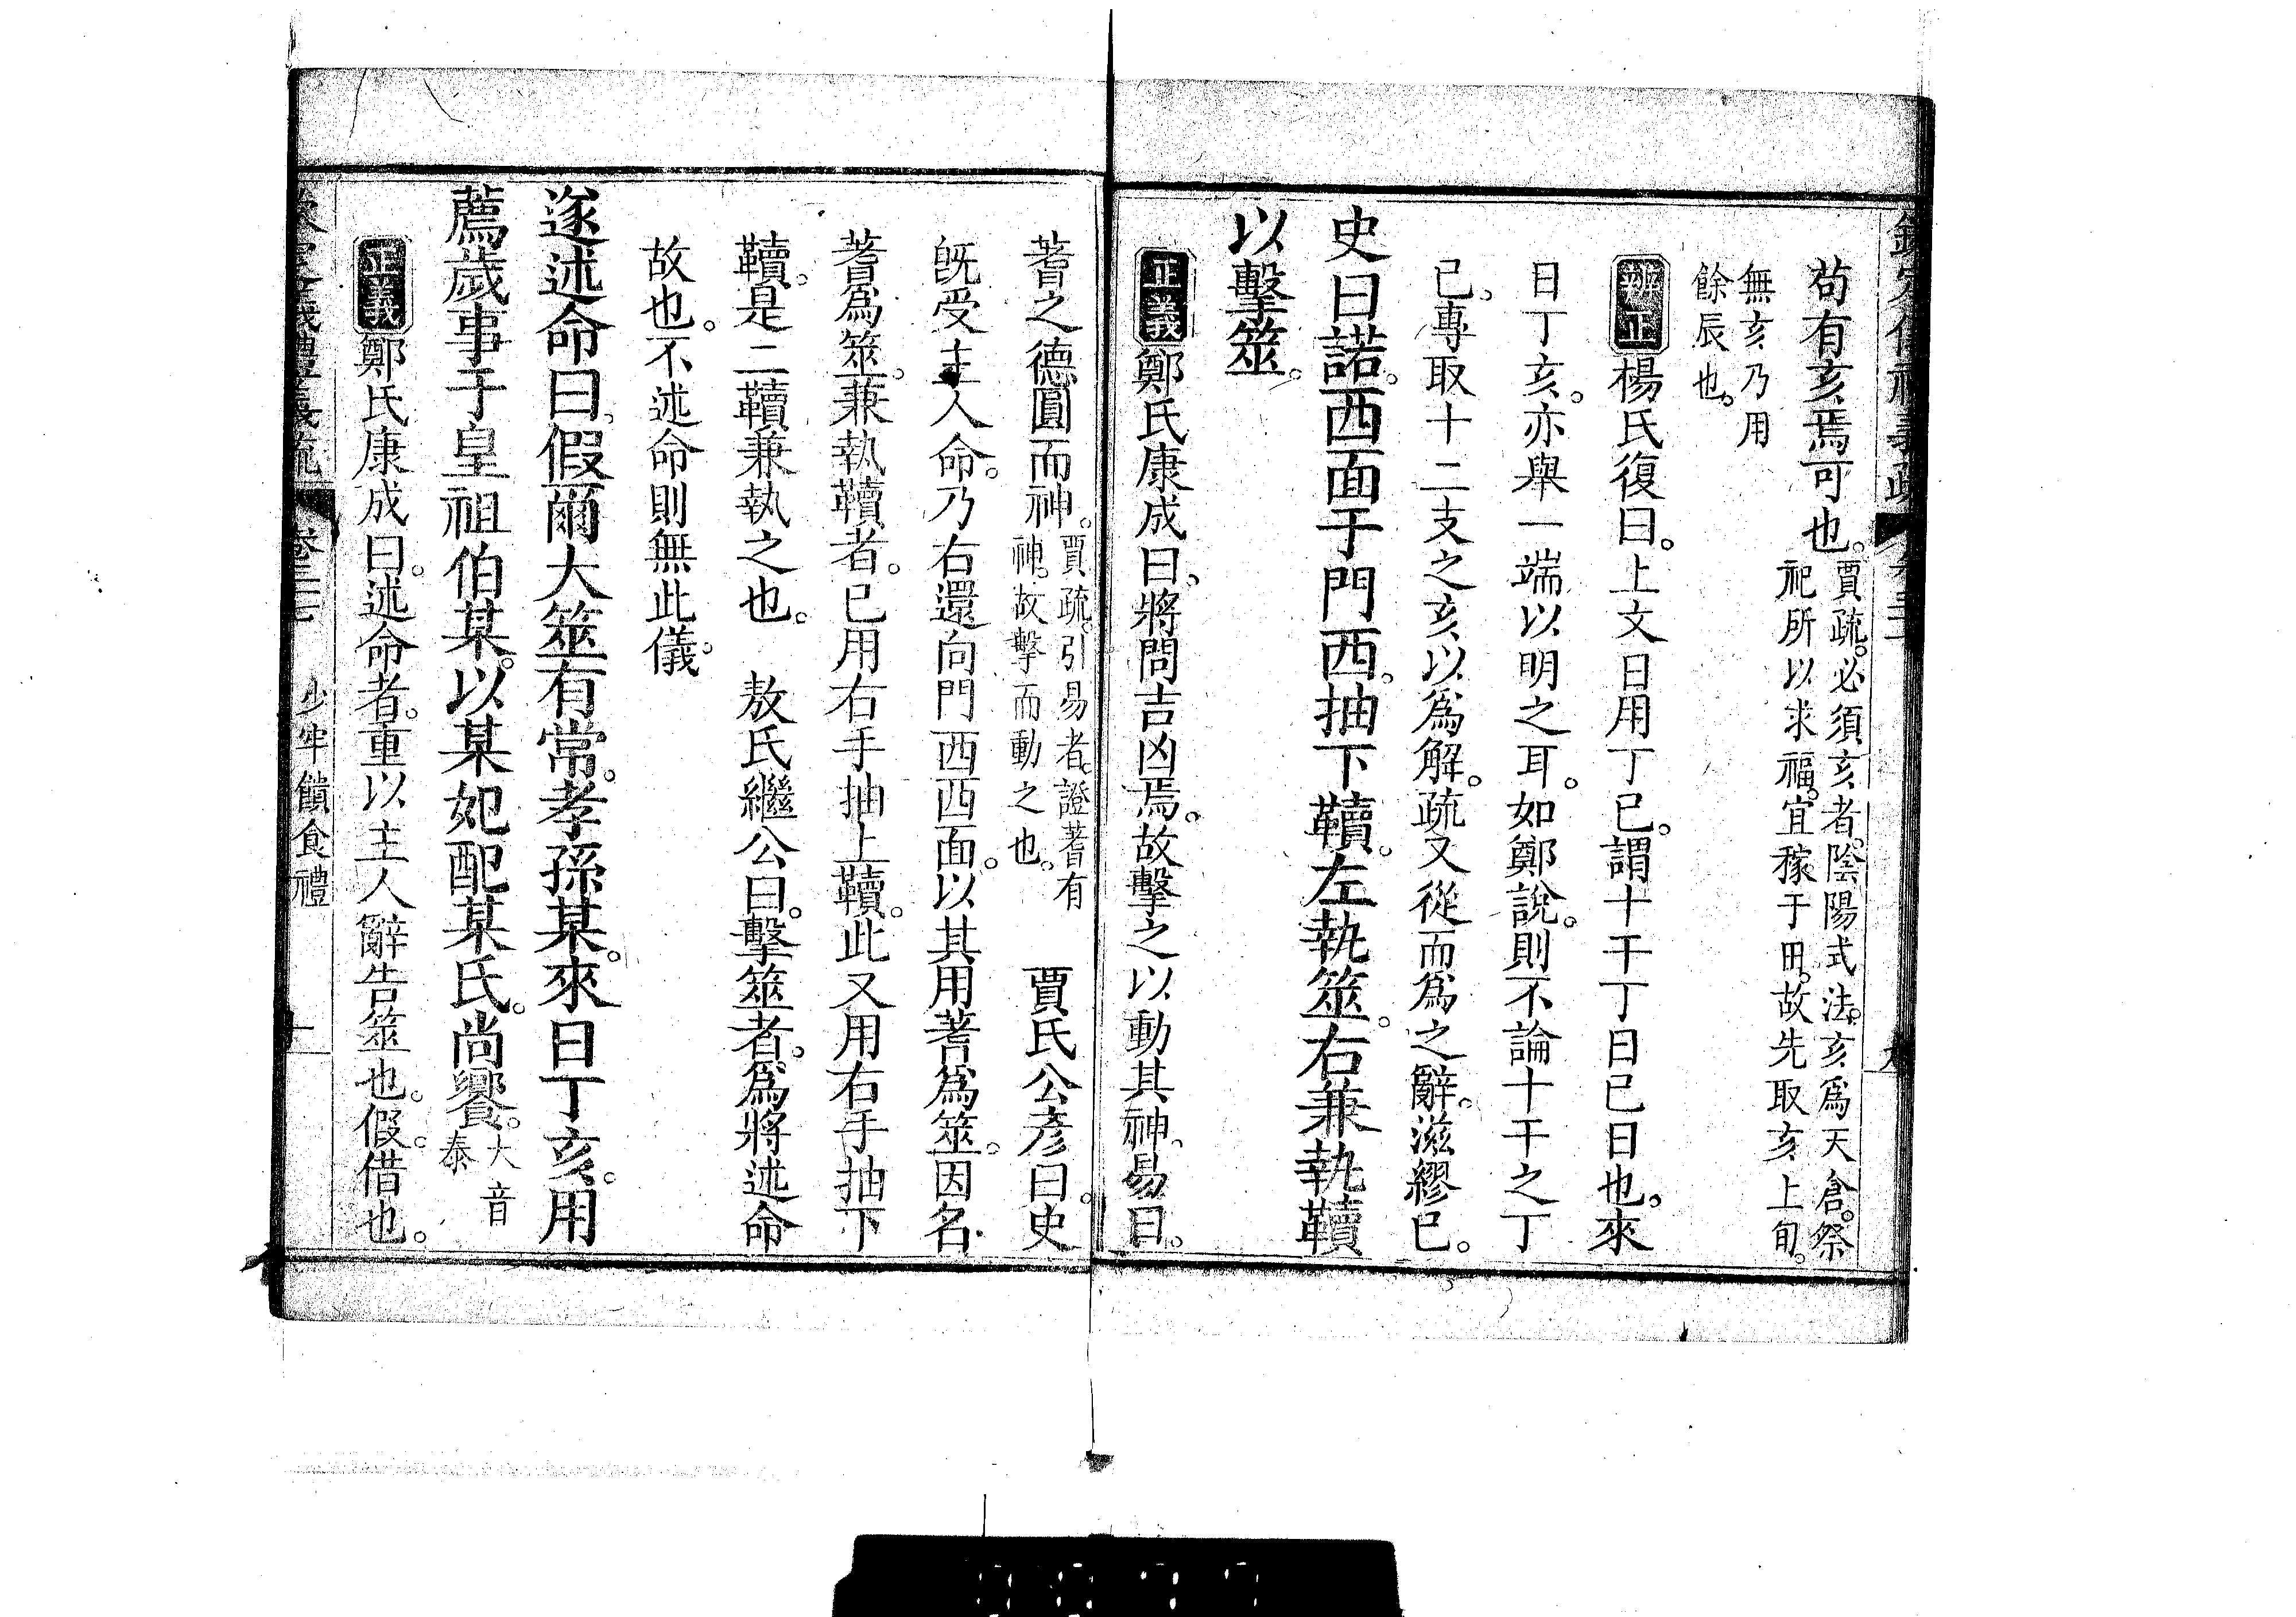 苟有亥焉可也。賈疏。必須亥者。陰陽式法。亥爲天倉。祭
祀所以求福。宜稼于田。故先取亥上旬。
無亥乃用
餘辰也。
辨正楊氏復曰。上文日用丁已。謂十干丁日已日也。來
日丁亥。亦舉一端以明之耳。如鄭說。則不論十干之丁
已。專取十二支之亥以爲解。疏又從而爲之辭。滋繆已。
史曰諾。西面于門西。抽下韇。左執筮。右兼執韇
以擊筮。
正義鄭氏康成曰。將問吉凶焉。故擊之以動其神。易曰。
蓍之德圓而神。賈疏。引易者。證蓍有
神。故擊而動之也。 賈氏公彥曰。史
旣受主人命。乃右還向門西西面。以其用蓍爲筮。因名
蓍爲筮。兼執韇者。已用右手抽上韇。此又用右手抽下
韇。是二韇兼執之也。 敖氏繼公曰。擊筮者。爲將述命
故也。不述命則無此儀。
遂述命曰。假爾大筮有常。孝孫某。來日丁亥。用
薦歲事于皇祖伯某。以某妃配某氏。尚饗。大音
泰
正義鄭氏康成曰。述命者。重以主人辭告筮也。假。借也。
少牢饋食禮